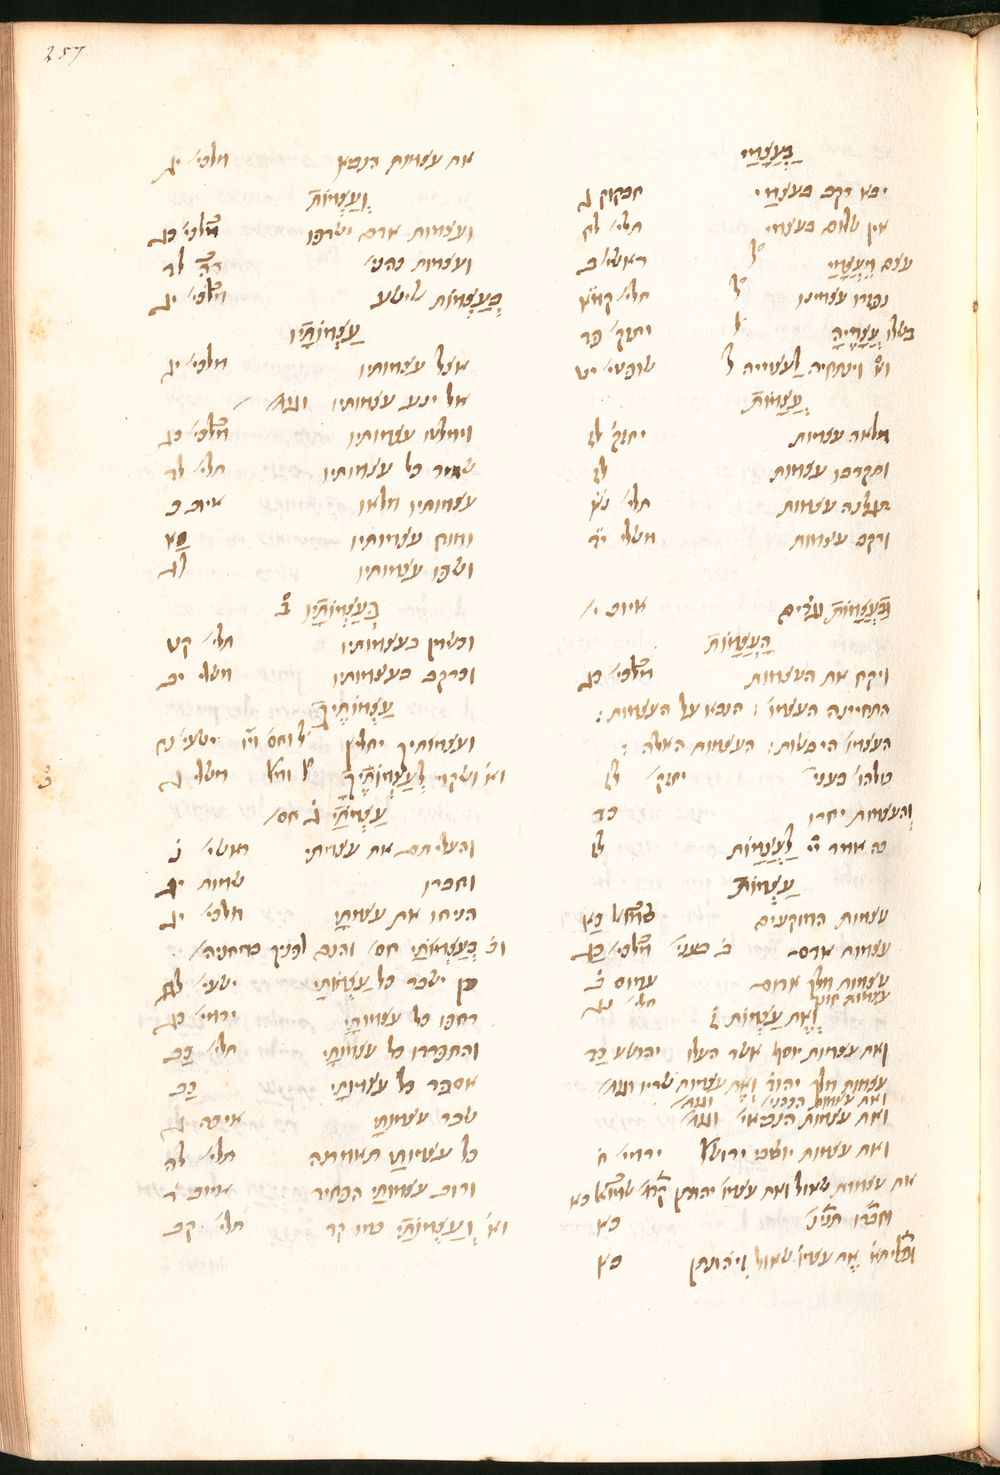 257
בַּעֲצָמַי
יבא רקב בעצמי חבקוק ג
אין שלום בעצמי תלי׳ לח
עצם מֵעֲצָמַי ל׳ בראשי׳ ב
נפזרו עצמינו ל׳ תלי׳ קמא
בשלו עֲצָמֶיהָ ל׳ יחזק׳ כד
וינתחיה לַעֲצָמֶיהָ ל׳ שופטי׳ יט
עֲצָמוֹת
מלאה עצמות יחזק׳ לז
ותקרבו עצמות לז
תגלנה עצמות תלי׳ נא
ורקב עצמות משלי יד
וּבַעֲצָמוֹת וגידים איוב י׳
הָעֲצָמוֹת
ויקח את העצמות מלכי׳ כג
התחיינה העצמו׳ : הנבא על העצמות :
העצמו׳ היבשות : העצמות האלה :
כולהו בעני׳ יחזק׳ לז
והעצמות יחרו כד
כה אמר יי׳ לָעֲצָמוֹת לז
עַצְמוֹת
עצמות המוקעים שמוא׳ כא
עצמות אדם ב׳ בעני׳ מלכי׳ כג
עצמות מלך אדום עמוס ב
עצמות חונך תלי׳ נג
וְאֶת עַצְמוֹת
ואת עצמות יוסף אשר העלו יהושע כד
עצמות מלך יהוד׳ ואת עצמות שריו וגו׳
ואת עצמות הכהני׳ וגו׳
ואת עצמות הנביאי׳ וגו׳
ואת עצמות יושבי ירושל׳ ירמי׳ ח
את עצמות שאול ואת עצמו׳ יהונתן שמוא׳ כא
כא
את עצמו׳ שאול ויהונתן כא
את עצמות הנביא מלכי׳ יג
וְעַצְמוֹת
ועצמות אדם ישרפו מלכי׳ יג
ועצמות כהני׳ ד״ה לד
בְּעַצְמוֹת אלישע מלכי׳ יג
עַצְמוֹתָיו
אצל עצמותיו מלכי׳ יג
אל ינע עצמותיו וגו׳
וימלטו עצמותיו מלכי׳ כג
שומר כל עצמותיו תלי׳ לד
עצמותיו מלאו איוב כ
ומוח עצמותיו כא
ושפו עצמותיו לג
בְּעַצְמוֹתָיו ב׳
וכשמן בעצמותיו תלי׳ קט
וכרקב בעצמותיו משלי יב
עַצְמוֹתֶיךָ
ועצמותיך יחליץ ל׳ וחס׳ ישעי׳ נח
וא׳ ושקוי לְעַצְמוֹתֶיךָ ל׳ ומל׳ משלי ג
עַצְמֹתַי ג׳ חס׳
והעליתם את עצמתי בראשי׳ נ
וחברו שמות יג
הניחו את עצמתי מלכי׳ יג
וב׳ בְּעַצְמֹתַי חס׳
כן ישבר כל עַצְמֹתַי ישעי׳ לח
רחפו כל עצמותי ירמי׳ כג
והתפרדו כל עצמותי תלי׳ כב
אספר כל עצמותי כב
שבר עצמותי איכה ג
כל עצמותי תאמרנה תלי׳ לה
ורוב עצמותי הפחיד איוב ד
וא׳ וְעַצְמוֹתַי כמו קד תלי׳ קב